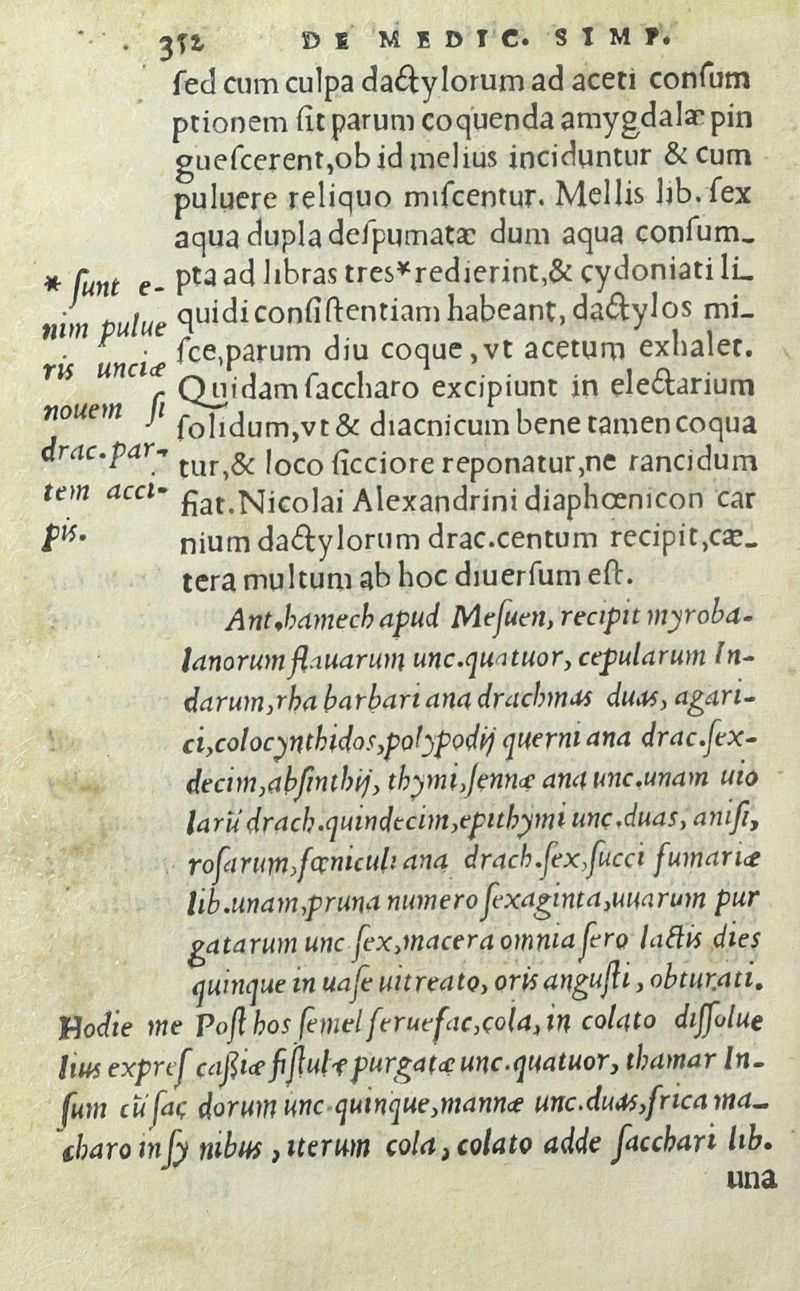 352 DE MEDIC. SIMP.
ſed cum culpa dactylorum ad aceti conſum
ptionem ſit parum coquenda amygdalæ pin
gueſcerent, ob id melius inciduntur & cum
puluere reliquo miſcentur. Mellis lib. ſex
aqua dupla deſpumatæ dum aqua conſum-
pta ad libras tres* redierint, & cydoniati li-
quidi conſiſtentiam habeant, dactylos mi-
ſce, parum diu coque, vt acetum exhalet.
Quidam ſaccharo excipiunt in electarium
ſolidum, vt & diacnicum bene tamen coqua
tur, & loco ſicciore reponatur, ne rancidum
fiat. Nicolai Alexandrini diaphœnicon car
nium dactylorum drac. centum recipit, cæ-
tera multum ab hoc diuerſum eſt.
* ſunt e-
nim pulue
ris unciæ
nouem ſi
drac. par-
tem acci-
pis.
Ant. hamech apud Meſuen, recipit myroba-
lanorum flauarum unc. quatuor, cepularum In-
darum, rha barbari ana drachmas duas, agari-
ci, colocynthidos, polypodij querni ana drac. ſex-
decim, abſinthij, thymi, ſennæ ana unc. unam uio
larū drach. quindecim, epithymi unc. duas, aniſi,
roſarum, fœniculi ana drach. ſex, ſucci fumariæ
lib. unam, pruna numero ſexaginta, uuarum pur
gatarum unc ſex, macera omnia ſero lactis dies
quinque in uaſe uitreato, oris anguſti, obturati.
Poſt hos ſemel feruefac, cola, in colato diſſolue
caſſiæ fiſtulæ purgatæ unc. quatuor, thamar In-
dorum unc. quinque, mannæ unc. duas, frica ma-
nibus, iterum cola, colato adde ſacchari lib.
Hodie me
lius expreſ
ſum cū ſac
charo in ſy
una